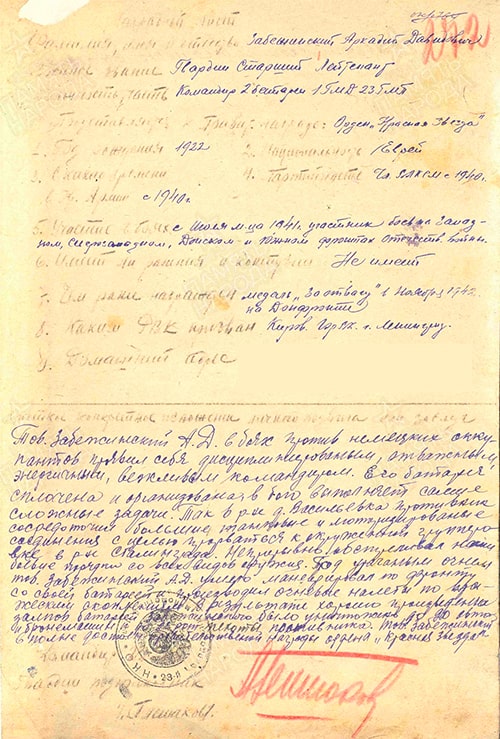 Наградной Лист
272
Фамилия, имя и отчество Забежинский Аркадий Давидович
Военное звание Гвардии Старший Лейтенант
Должность, часть Командир 2 батареи 1 ГМД 23 ГМП
Представляется к Правит. награде: Орден „Красная Звезда"
1. Год рождения 1922 2. Национальность Еврей
3. С какого времени 4. Партийность Чл. ВЛКСМ с 1940г.
в Кр. Армии с 1940г.
5. Участие в боях с Июля м-ца 1941г. участник боев на Запад-
ном, Северозападном, Донском и Южном фронтах отечеств. войны.
6. Имеет ли ранения и контузии Не имеет
7. Чем ранее награжден медаль „За отвагу" в Ноябре 1942
на Донфронте
8. Каким РВК призван Киров. ГорВк. г. Ленинград.
9. Домашний адрес
Краткое конкретное изложение личного боевых заслуг
Тов. Забежинский А.Д. в боях против немецких окку-
пантов проявил себя дисциплинированым, отважным,
энергичным, вежливым командиром. Его батарея
сплочена и организована, в бою выполняет самые
сложные задачи. Так в р-не д. Васильевка противник
сосредоточил большие танковые и моторизированые
соединения с целью прорваться к окруженной группиро-
вке в р-не Сталинграда. Непрерывно обстреливал наши
боевые порядки со всех видов оружия. Под ураганым огнем
тов. Забежинский А.Д. умело маневрировал по фронту
со своей батареей и производил огневые налеты по вра-
жескому скоплению. В результате хорошо произведенных
залпов батареей
было уничтожено до
противника. Тов. Забежинский
вполне достоин правительственной награды ордена „Красная Звезда"
Командир
Гвардии